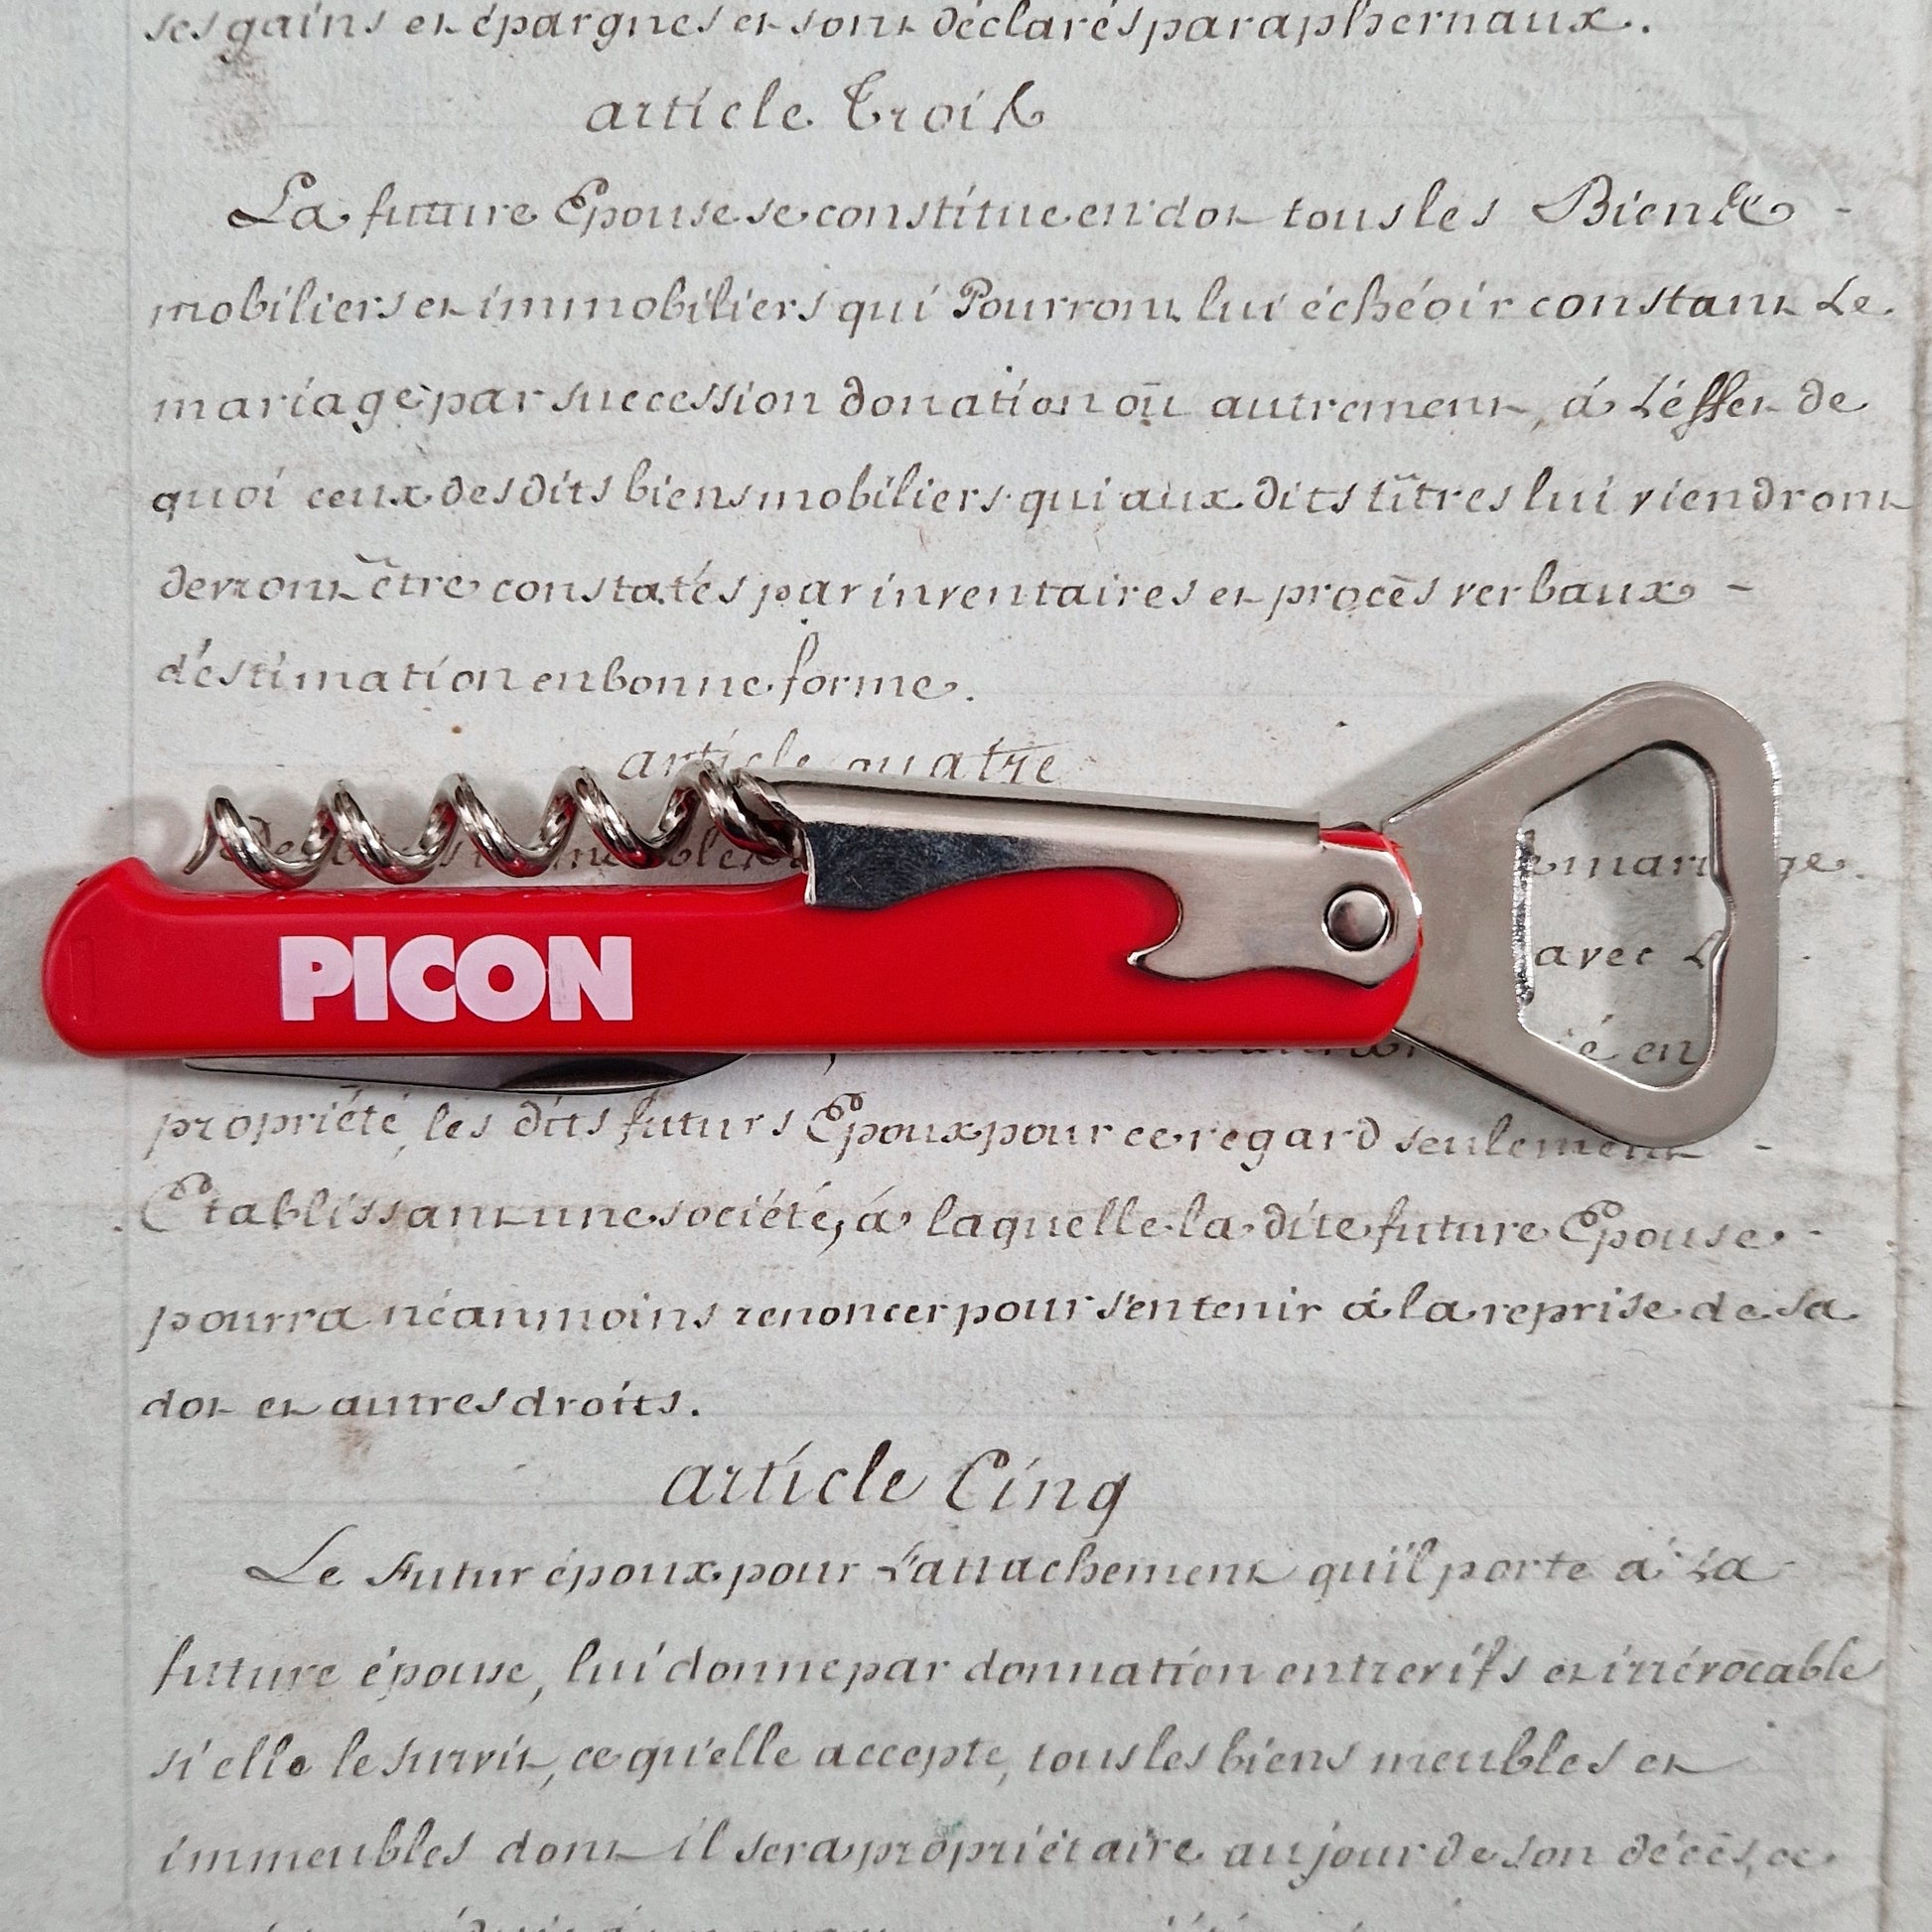 ses gains et épargnes et sont déclarés paraphernaux.
article Trois
La future Epouse se constitue en dot tous les Biens -
mobiliers et immobiliers qui Pourront lui échéoir constant Le
mariage par succession donation où autrement, á L'éffet de
quoi ceux desdits biens mobiliers qui aux dits tîtres lui viendront
devront être constatés par inventaires et procès verbaux -
d'éstimation en bonne forme.
article quatre
avec
PICON
en
propriété, les dits futurs Epoux pour ce regard seulement -
Etablissant une société, á laquelle la dite future Epouse -
pourra néanmoins renoncer pour s'en tenir á la reprise de sa
dot et autres droits.
article Cinq
Le Futur époux pour L'attachement qu'il porte á La
future épouse, lui donne par donnation entre vifs et irrévocable
si elle le survit, ce qu'elle accepte, tous les biens meubles et
immeubles dont il sera propriétaire au jour de son décès, ce